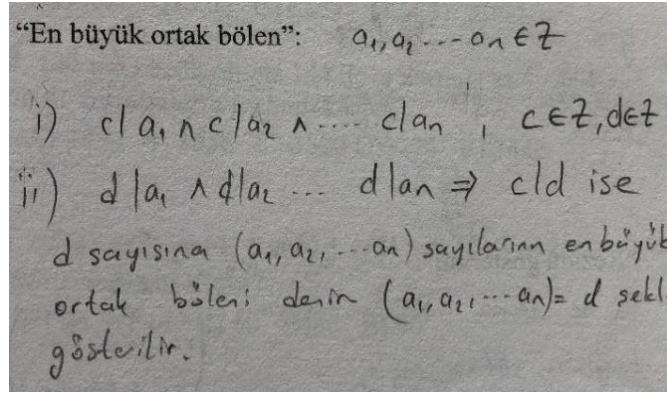 “En büyük ortak bölen”: a₁, a₂ ... an ∈ Z
i) c|a₁ ∧ c|a₂ ∧ .... c|an , c∈Z, d∈Z
ii) d|a₁ ∧ d|a₂ ... d|an ⇒ c|d ise
d sayısına (a₁, a₂, ... an) sayılarının en büyük
ortak böleni denir (a₁, a₂, ... an) = d şekl
gösterilir.